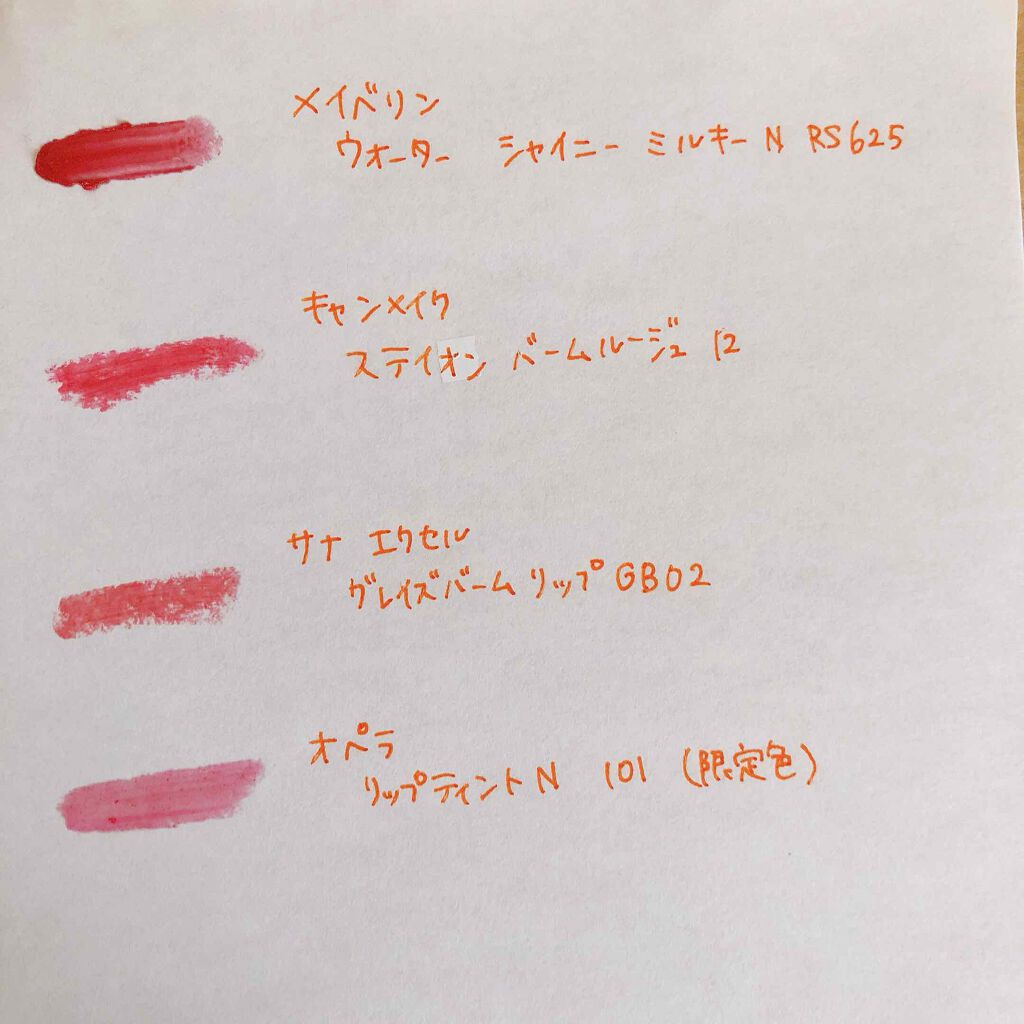 メイベリン
ウオーター シャイニー ミルキー N RS625
キャンメイク
ステイオン バームルージュ 12
サナ エクセル
グレイズバーム リップ GB02
オペラ
リップティント N 101 (限定色)